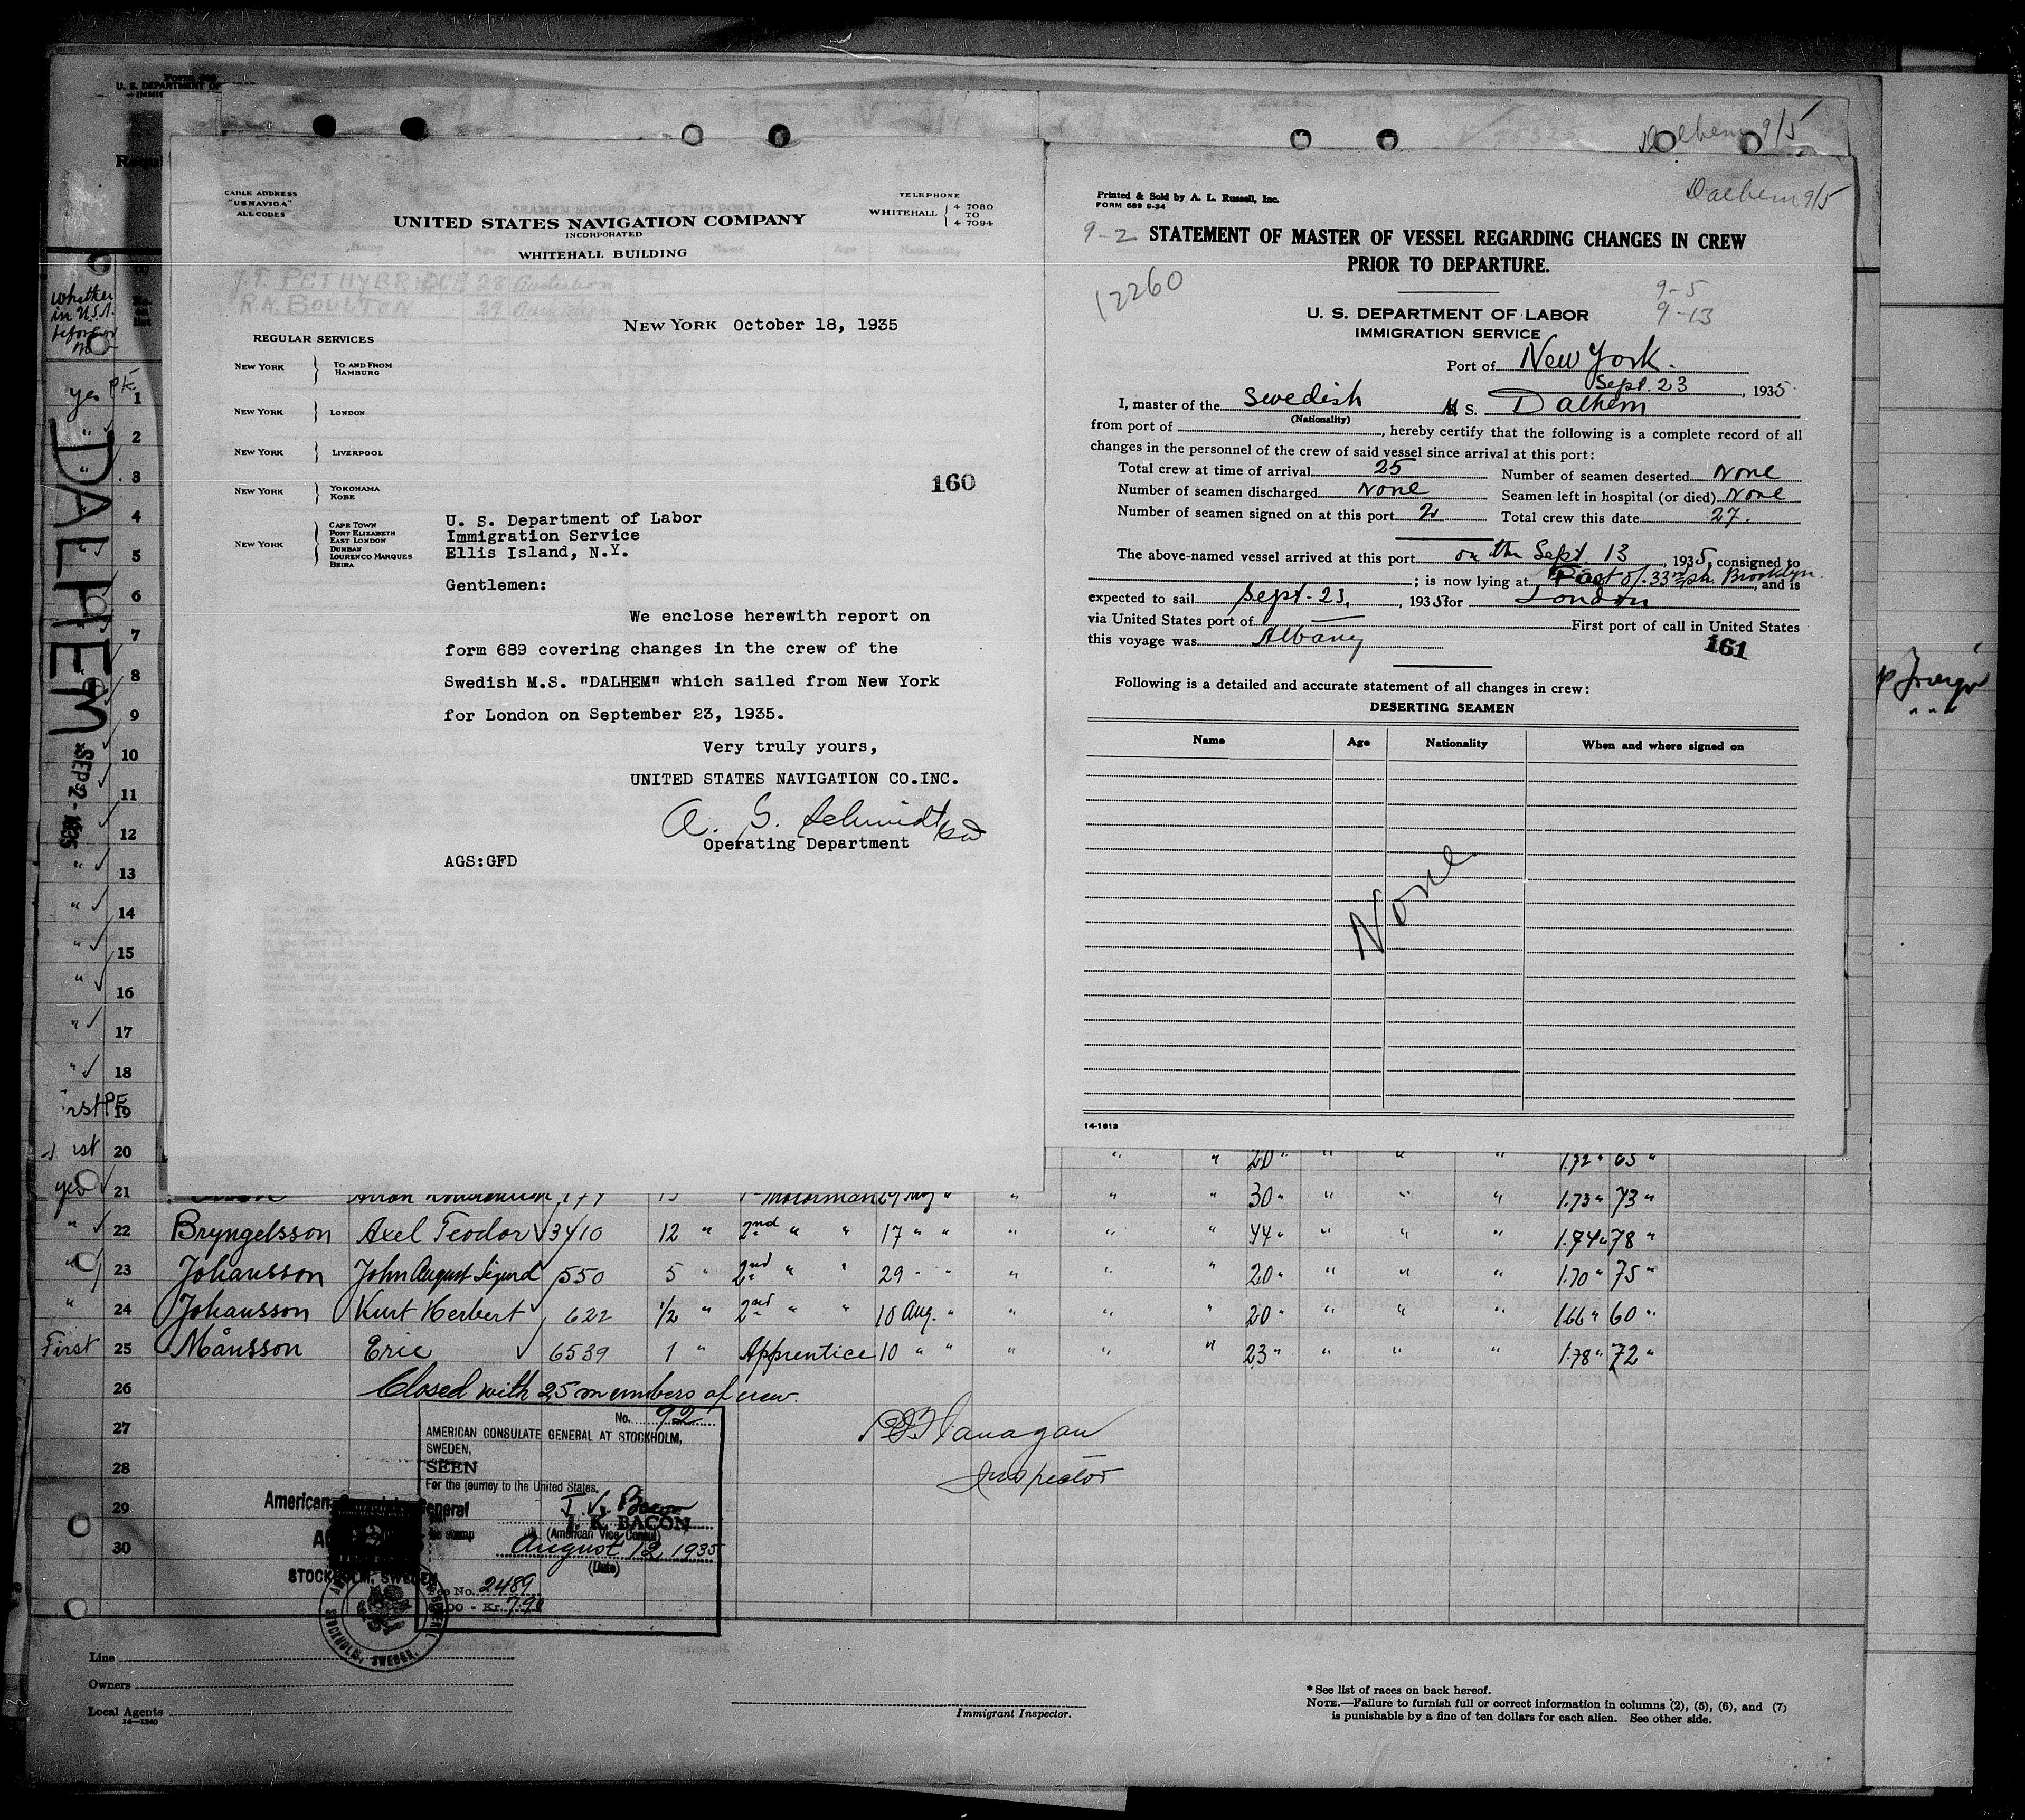 CABLE ADDRESS
"USNAVIGA"
ALL CODES
TELEPHONE
WHITEHALL 4-7080
TO
4-7094
UNITED STATES NAVIGATION COMPANY
INCORPORATED
WHITEHALL BUILDING
J.T. PETHYBRIDGE 28 Australian
R.A. BOULTON 29
NEW YORK October 18, 1935
REGULAR SERVICES
NEW YORK } TO AND FROM
HAMBURG
NEW YORK } LONDON
NEW YORK } LIVERPOOL
NEW YORK } YOKOHAMA
KOBE
NEW YORK } CAPE TOWN
PORT ELIZABETH
EAST LONDON
DURBAN
LOURENCO MARQUES
BEIRA
160
U. S. Department of Labor
Immigration Service
Ellis Island, N.Y.
Gentlemen:
We enclose herewith report on
form 689 covering changes in the crew of the
Swedish M.S. "DALHEM" which sailed from New York
for London on September 23, 1935.
Very truly yours,
UNITED STATES NAVIGATION CO.INC.
A. G. Schmidt
Operating Department
AGS:GFD
Dalhem 9/5
Dalhem 9/5
Printed & Sold by A. L. Russell, Inc.
FORM 689 9-34
9-2 STATEMENT OF MASTER OF VESSEL REGARDING CHANGES IN CREW
PRIOR TO DEPARTURE.
12260
9-5
9-13
U. S. DEPARTMENT OF LABOR
IMMIGRATION SERVICE
Port of New York.
Sept. 23, 1935
I, master of the Swedish M S. Dalhem
(Nationality)
from port of , hereby certify that the following is a complete record of all
changes in the personnel of the crew of said vessel since arrival at this port:
Total crew at time of arrival 25 Number of seamen deserted None
Number of seamen discharged None Seamen left in hospital (or died) None
Number of seamen signed on at this port 2 Total crew this date 27.
The above-named vessel arrived at this port on the Sept. 13, 1935, consigned to
; is now lying at Foot of 33rd str. Brooklyn, and is
expected to sail Sept. 23, 1935 for London
via United States port of First port of call in United States
this voyage was Albany
161
Following is a detailed and accurate statement of all changes in crew:
DESERTING SEAMEN
Name Age Nationality When and where signed on
None
14-1613
U. S. DEPARTMENT OF
whether
in U.S.A.
before or
no
DALHEM
SEP 2 - 1935
yes PE 1
" 2
" 3
4
" 5
6
7
8
9
10
11
12
" 13
" 14
" 15
" 16
" 17
" 18
rst PE 19
rst 20 " " 20 " " " " 1.72 " 65 "
yes 21 Motorman 29 Aug " " " " 30 " " " " 1.73 " 73 "
" 22 Bryngelsson Axel Teodor 3410 12 " 2nd " " 17 " " " " " 44 " " " " 1.74 " 78 "
" 23 Johansson John August Sigurd 550 5 " 2nd " " 29 " " " " " 20 " " " " 1.70 " 75 "
" 24 Johansson Kurt Herbert 622 1/2 " 2nd " " 10 Aug. " " " " 20 " " " " 1.66 " 60 "
First 25 Månsson Eric 6539 1 " Apprentice 10 " " " " " 23 " " " " 1.78 " 72 "
26 Closed with 25 members of crew.
27
28
29
30
No. 92
AMERICAN CONSULATE GENERAL AT STOCKHOLM,
SWEDEN,
SEEN
For the journey to the United States.
J. K. BACON
(American Vice Consul)
August 12, 1935
(Date)
Fee No. 2489
Kr. 7.90
American General
STOCKHOLM, SWEDEN
STOCKHOLM, SWEDEN.
Flanagan
Inspector
Line
Owners
Local Agents
14-1240
Immigrant Inspector.
* See list of races on back hereof.
NOTE.—Failure to furnish full or correct information in columns (2), (5), (6), and (7)
is punishable by a fine of ten dollars for each alien. See other side.